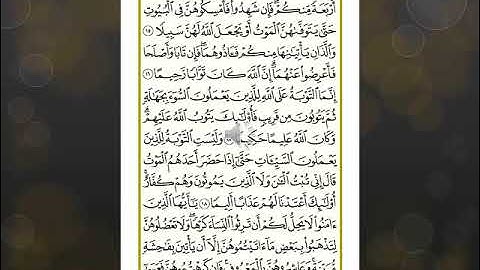 أَرْبَعَةً مِّنكُمْ ۖ فَإِن شَهِدُوا۟ فَأَمْسِكُوهُنَّ فِى ٱلْبُيُوتِ
حَتَّىٰ يَتَوَفَّىٰهُنَّ ٱلْمَوْتُ أَوْ يَجْعَلَ ٱللَّهُ لَهُنَّ سَبِيلًا ١٥
وَٱلَّذَانِ يَأْتِيَـٰنِهَا مِنكُمْ فَـَٔاذُوهُمَا ۖ فَإِن تَابَا وَأَصْلَحَا
فَأَعْرِضُوا۟ عَنْهُمَآ ۗ إِنَّ ٱللَّهَ كَانَ تَوَّابًا رَّحِيمًا ١٦
إِنَّمَا ٱلتَّوْبَةُ عَلَى ٱللَّهِ لِلَّذِينَ يَعْمَلُونَ ٱلسُّوٓءَ بِجَهَـٰلَةٍ
ثُمَّ يَتُوبُونَ مِن قَرِيبٍ فَأُو۟لَـٰٓئِكَ يَتُوبُ ٱللَّهُ عَلَيْهِمْ ۗ
وَكَانَ ٱللَّهُ عَلِيمًا حَكِيمًا ١٧ وَلَيْسَتِ ٱلتَّوْبَةُ لِلَّذِينَ
يَعْمَلُونَ ٱلسَّيِّـَٔاتِ حَتَّىٰٓ إِذَا حَضَرَ أَحَدَهُمُ ٱلْمَوْتُ
قَالَ إِنِّى تُبْتُ ٱلْـَٔـٰنَ وَلَا ٱلَّذِينَ يَمُوتُونَ وَهُمْ كُفَّارٌ ۚ
أُو۟لَـٰٓئِكَ أَعْتَدْنَا لَهُمْ عَذَابًا أَلِيمًا ١٨ يَـٰٓأَيُّهَا ٱلَّذِينَ
ءَامَنُوا۟ لَا يَحِلُّ لَكُمْ أَن تَرِثُوا۟ ٱلنِّسَآءَ كَرْهًا ۖ وَلَا تَعْضُلُوهُنَّ
لِتَذْهَبُوا۟ بِبَعْضِ مَآ ءَاتَيْتُمُوهُنَّ إِلَّآ أَن يَأْتِينَ بِفَـٰحِشَةٍ
مُّبَيِّنَةٍ ۚ وَعَاشِرُوهُنَّ بِٱلْمَعْرُوفِ ۚ فَإِن كَرِهْتُمُوهُنَّ فَعَسَىٰٓ